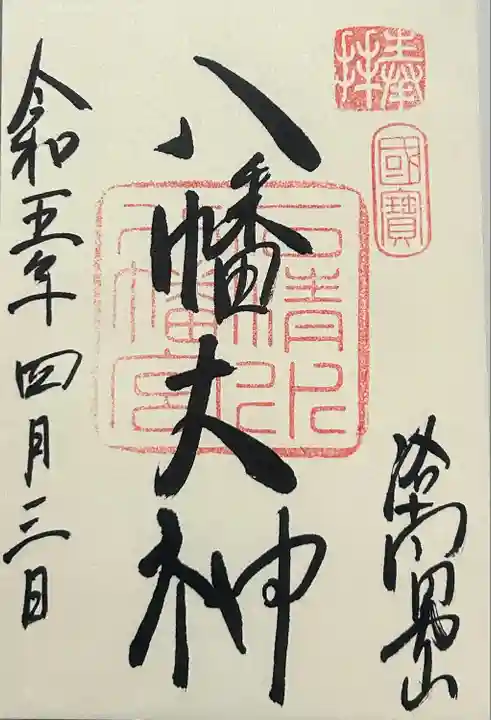 奉拝
國寶
洛南男山
八幡大神
石清水
八幡宮
令和五年四月三日